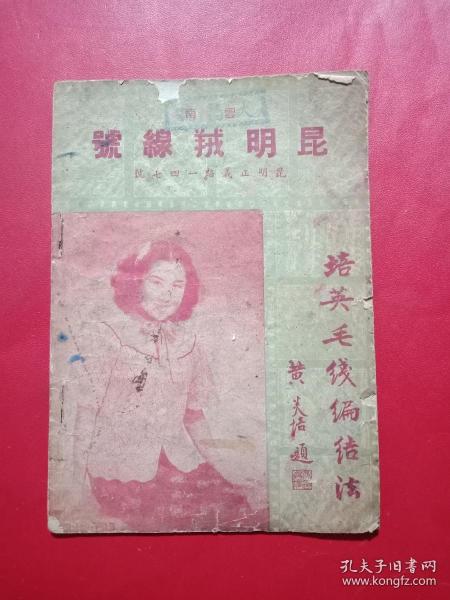 雲南
昆明絨線號
昆明正義路一四七號
培英毛线编结法
黄炎培題
孔夫子旧书网
www.kongfz.com